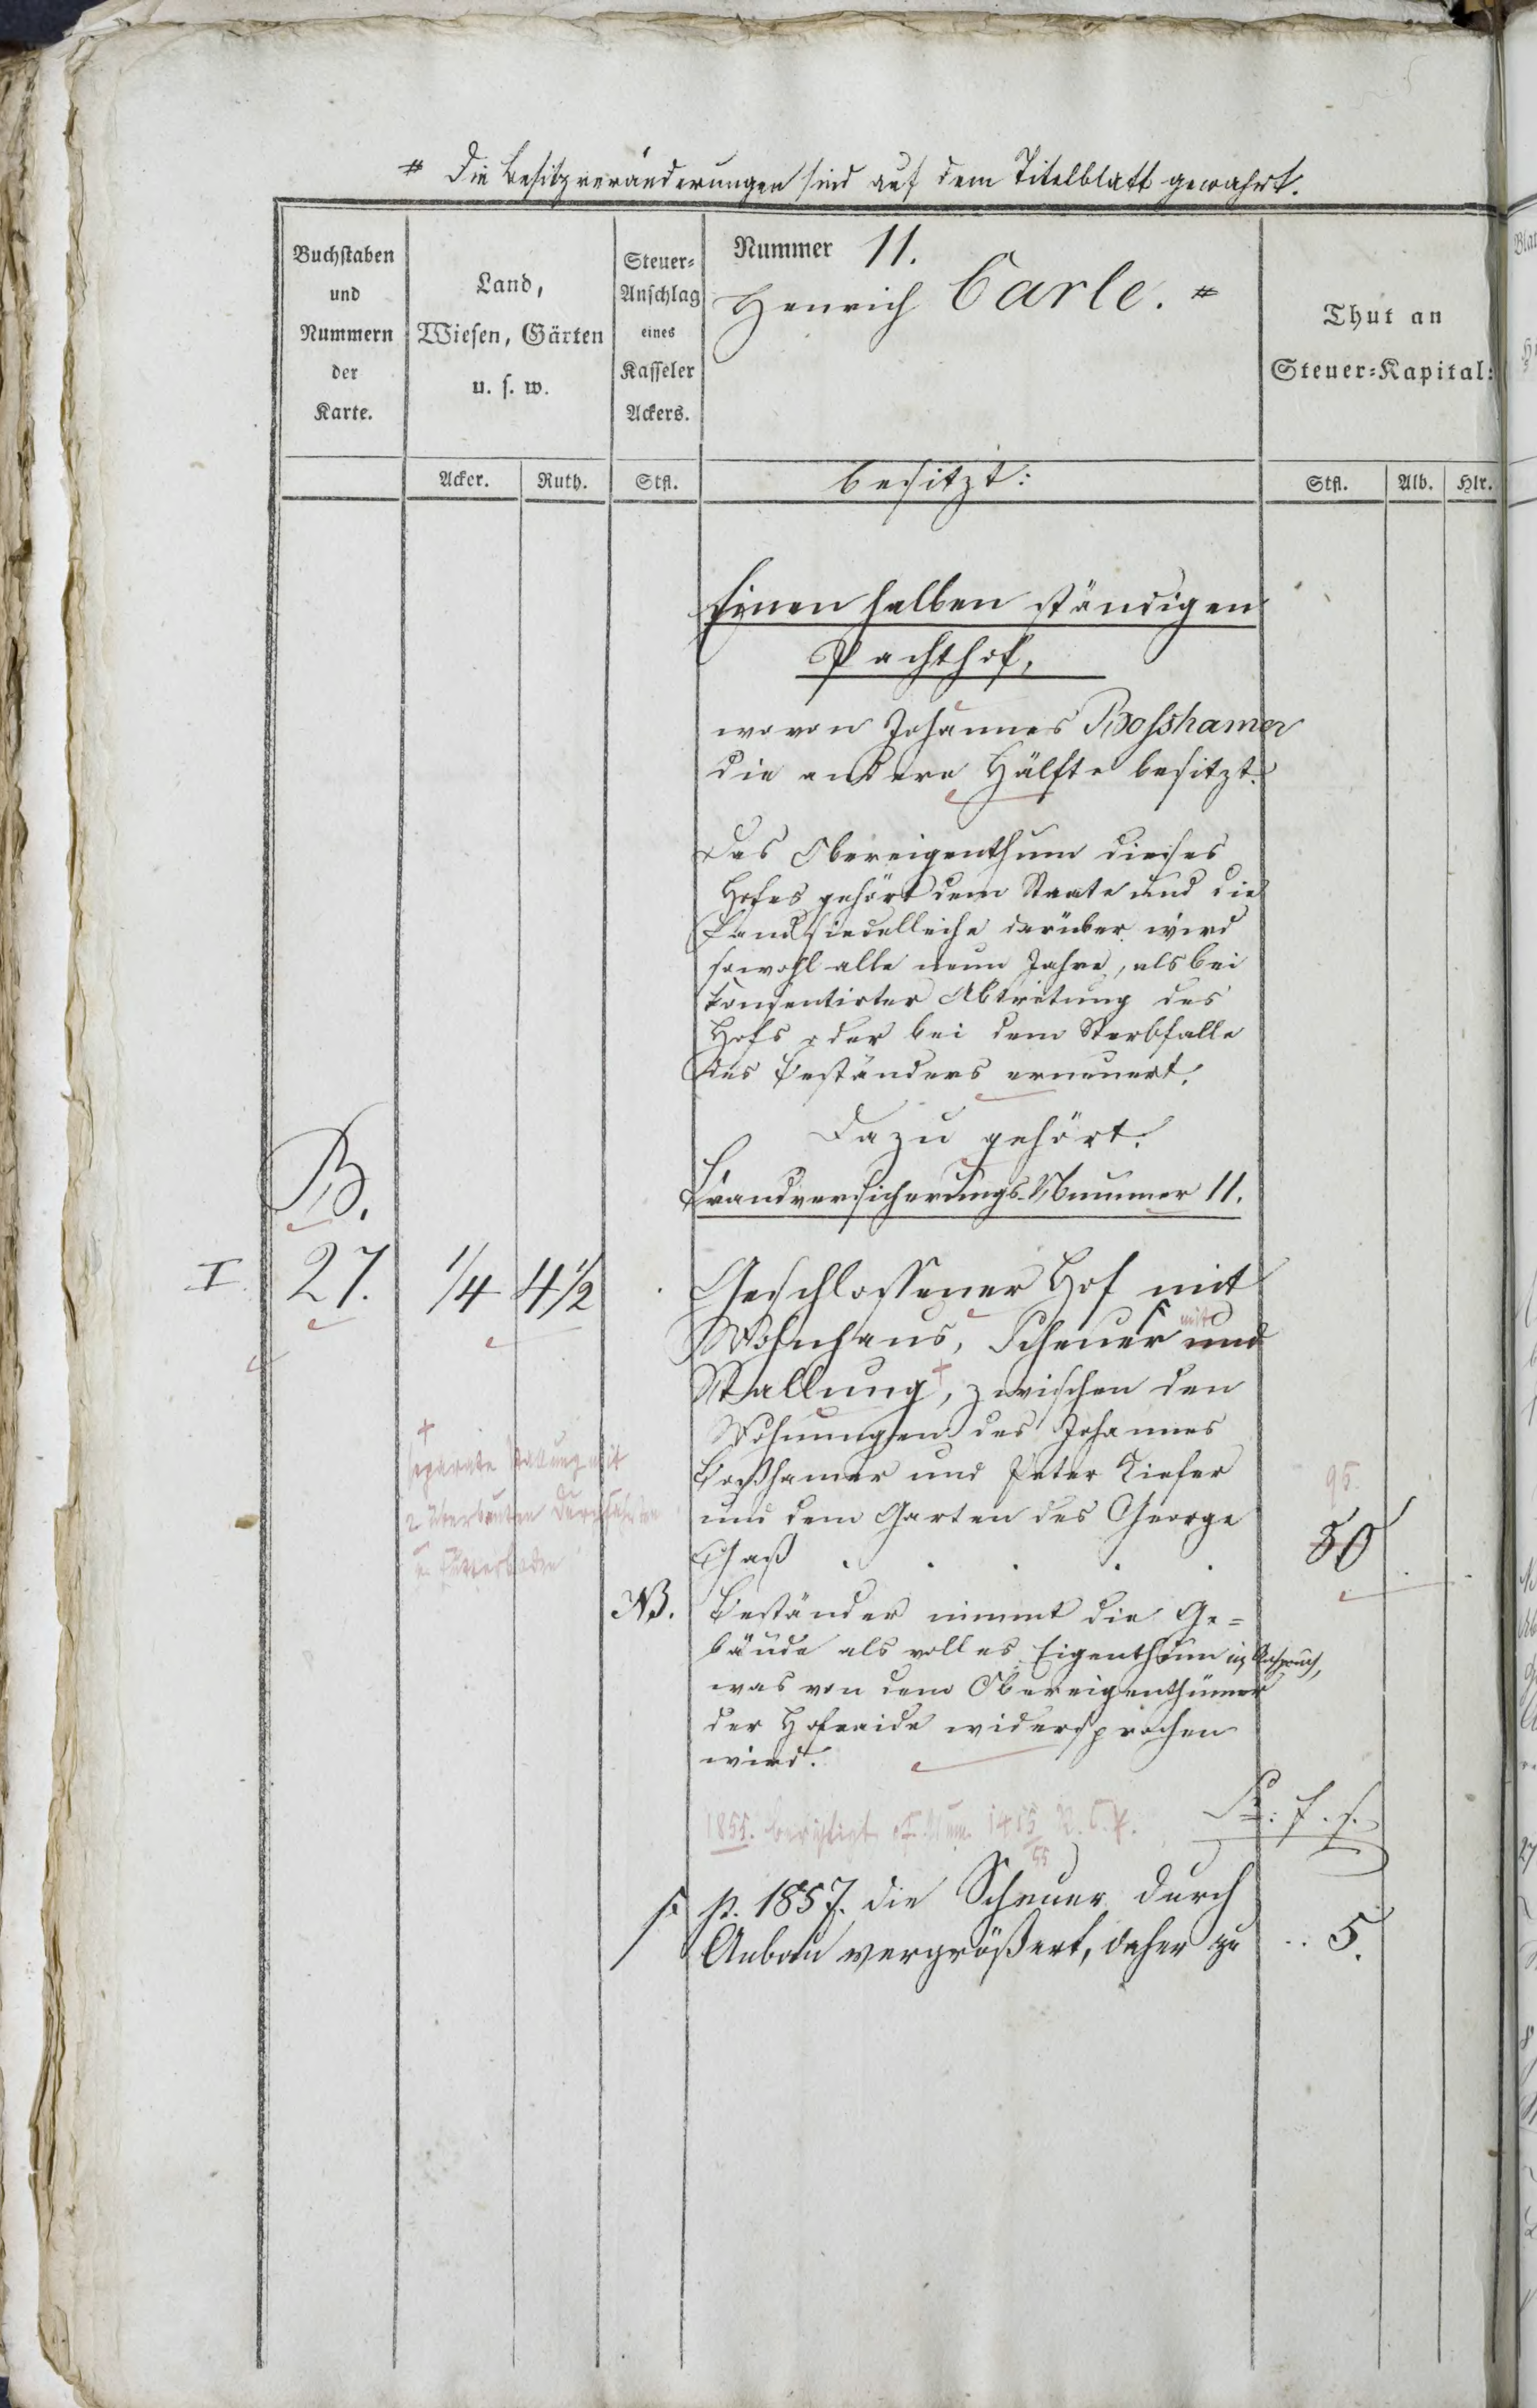 # Die Besitzveränderungen sind auf dem Titelblatt gewahrt.
Buchstaben
und
Nummern
der
Karte.
Land,
Wiesen, Gärten
u. s. w.
Steuer-
Anschlag
eines
Kasseler
Ackers.
Nummer 11.
Henrich Carle. #
Thut an
Steuer-Kapital:
Acker. Ruth. Stfl. besitzt: Stfl. Alb. Hlr.
Einen halben ständigen
Pachthof,
wovon Johannes Bosshamer
die andere Hälfte besitzt.
Das Obereigenthum dieses
Hofes gehört dem Staate und die
Landsiedelleihe darüber wird
sowohl alle neun Jahre, als bei
konsentirter Abtretung des
Hofs oder bei dem Sterbfalle
des Beständers erneuert.
Dazu gehört:
B. Brandversicherungs-Nummer 11.
I 27. 1/4 4 1/2 Geschlossener Hof mit
Wohnhaus, Scheuer mit und
Stallung +, zwischen den
Wohnungen des Johannes
Boßhamer und Peter Tiefer
und dem Garten des George
Gaß . . . . 50
95.
+
separate Stallung mit
2 überbauten Durchfahrten
u. Futterboden
NB. Beständer nimmt die Ge=
bäude als volles Eigenthum in Anspruch,
was von dem Obereigenthümer
der Hofraide widersprochen
wird.
1855. berichtigt 1415/55
S. f. f.
p. 1857. die Scheuer durch
Anbau vergrößert, daher zu .. 5.